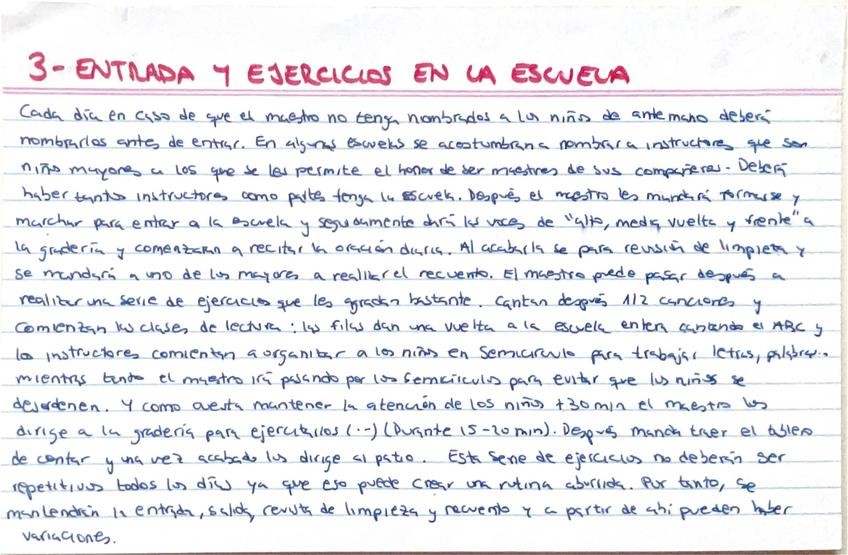 3- ENTRADA Y EJERCICIOS EN LA ESCUELA
Cada día en caso de que el maestro no tenga nombrados a los niños de antemano deberá
nombrarlos antes de entrar. En algunas escuelas se acostumbran a nombrar a instructores que son
niños mayores a los que se les permite el honor de ser maestros de sus compañeros. Deberá
haber tantos instructores como partes tenga la escuela. Después el maestro les mandará formarse y
marchar para entrar a la escuela y seguidamente dará las voces de "alto, media vuelta y frente" a
la gradería y comenzaran a recitar la oración diaria. Al acabarla se para revisión de limpieza y
se mandará a uno de los mayores a realizar el recuento. El maestro puede pasar después a
realizar una serie de ejercicios que les agradan bastante. Cantan después 1/2 canciones y
comienzan las clases de lectura: las filas dan una vuelta a la escuela entera cantando el ABC y
los instructores comienzan a organizar a los niños en semicírculo para trabajar letras, palabras...
mientras tanto el maestro irá pasando por los semicírculos para evitar que los niños se
desordenen. Y como cuesta mantener la atención de los niños +30 min el maestro los
dirige a la gradería para ejercitarlos (...) (Durante 15-20 min). Después manda traer el tablero
de contar y una vez acabado los dirige al patio. Esta serie de ejercicios no deberán ser
repetitivos todos los días ya que eso puede crear una rutina aburrida. Por tanto, se
mantendrán la entrada, salida, revista de limpieza y recuento y a partir de ahi pueden haber
variaciones.